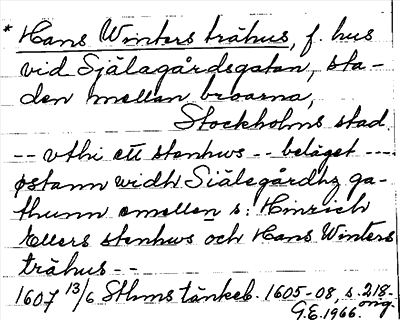 * Hans Winters trähus, f. hus
vid Själagårdsgatan, sta-
den mellan broarna,
Stockholms stad.
-- vthi ett stenhws -- beläget ----
östann widh Siälegårdhz ga-
thunn emellen s: Hinrich
Ellers stenhws och Hans Winters
trähus --
1607 13/6 Sthms tänkeb. 1605-08, s. 218.
orig.
G.E. 1966.